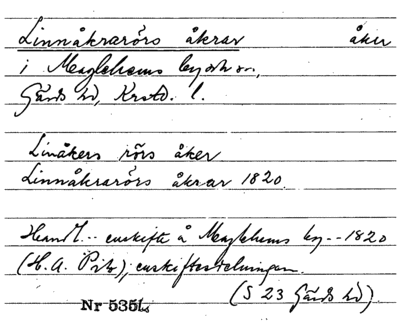 Linnåkrarörs åkrar åker
i Maglehems by och sn.,
Gärds hd, Krstd. l.
Linåkers rörs åker
Linnåkrarörs åkrar 1820.
Handl. -- enskifte å Maglehems by -- 1820
(H. A. Pihl); enskiftesdelningen.
(S 23 Gärds hd).
Nr 5351